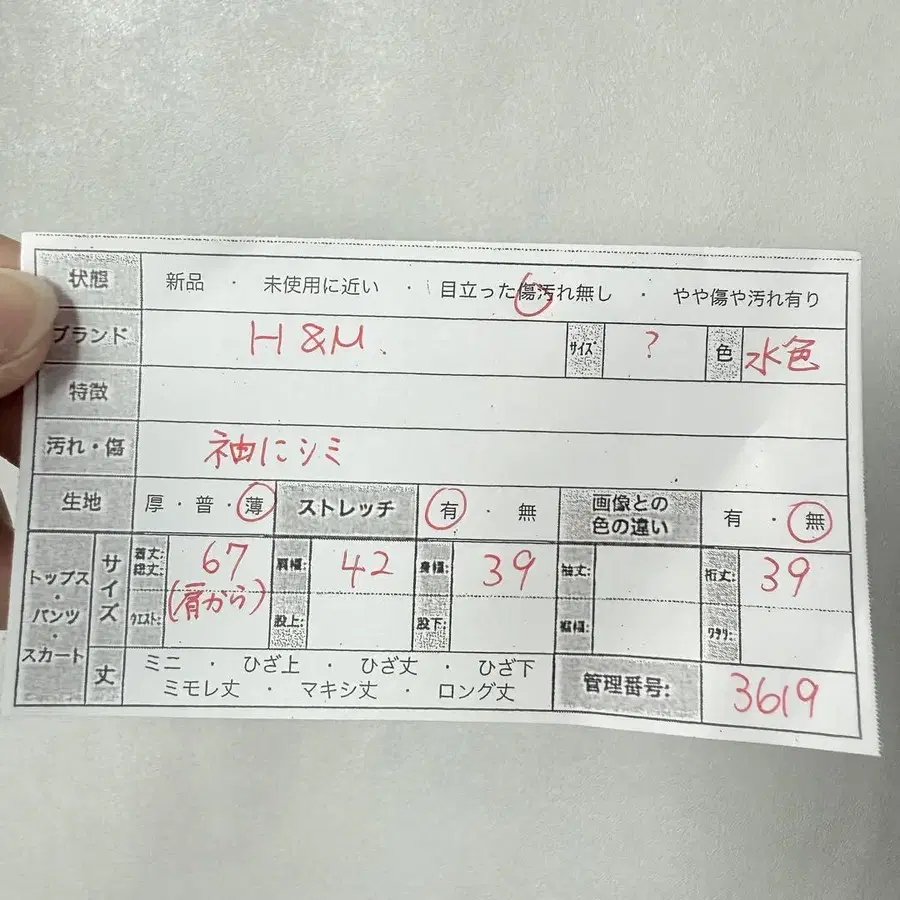 状態 新品 ・ 未使用に近い ・ 目立った傷汚れ無し ・ やや傷や汚れ有り
ブランド H&M. サイズ ? 色 水色
特徴
汚れ・傷 袖にシミ
生地 厚・普・薄 ストレッチ 有 ・ 無 画像との色の違い 有 ・ 無
トップス・パンツ・スカート サイズ 着丈: 総丈: 67 (肩から) 肩幅: 42 身幅: 39 袖丈: 裄丈: 39
ウエスト: 股上: 股下: 裾幅: ワタリ:
丈 ミニ ・ ひざ上 ・ ひざ丈 ・ ひざ下
ミモレ丈 ・ マキシ丈 ・ ロング丈
管理番号: 3619